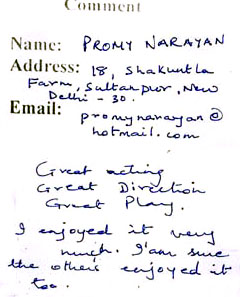 Comment
Name: PROMY NARAYAN
Address: 18, Shakuntla
Farm, Sultanpur, New
Delhi - 30.
Email: promynarayan@
hotmail.com
Great acting
Great Direction
Great Play.
I enjoyed it very
much. I'am sure
the others enjoyed it
too.